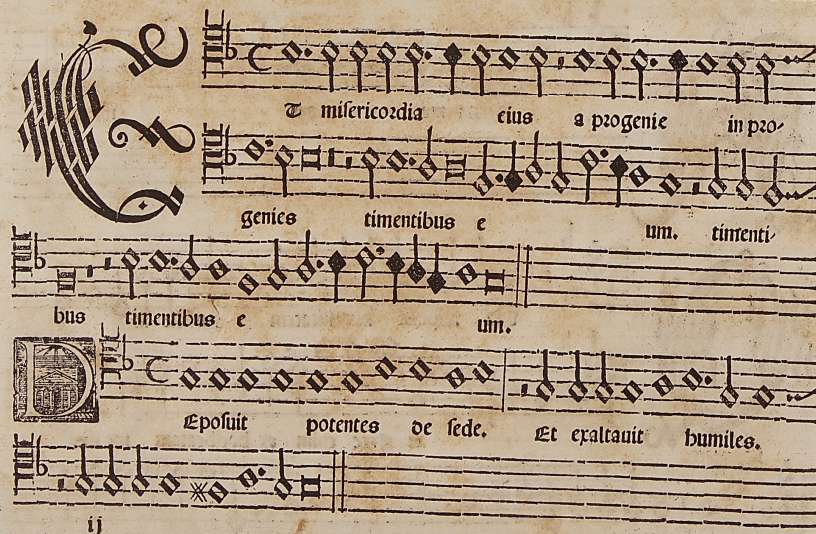 ET misericordia eius a progenie in pro-
genies timentibus e um. timenti-
bus timentibus e um.
DEposuit potentes de sede. Et exaltauit humiles.
ij